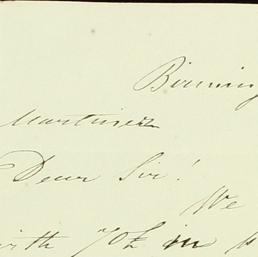 Birming
Martinez
Dear Sir!
We
with 70£ in